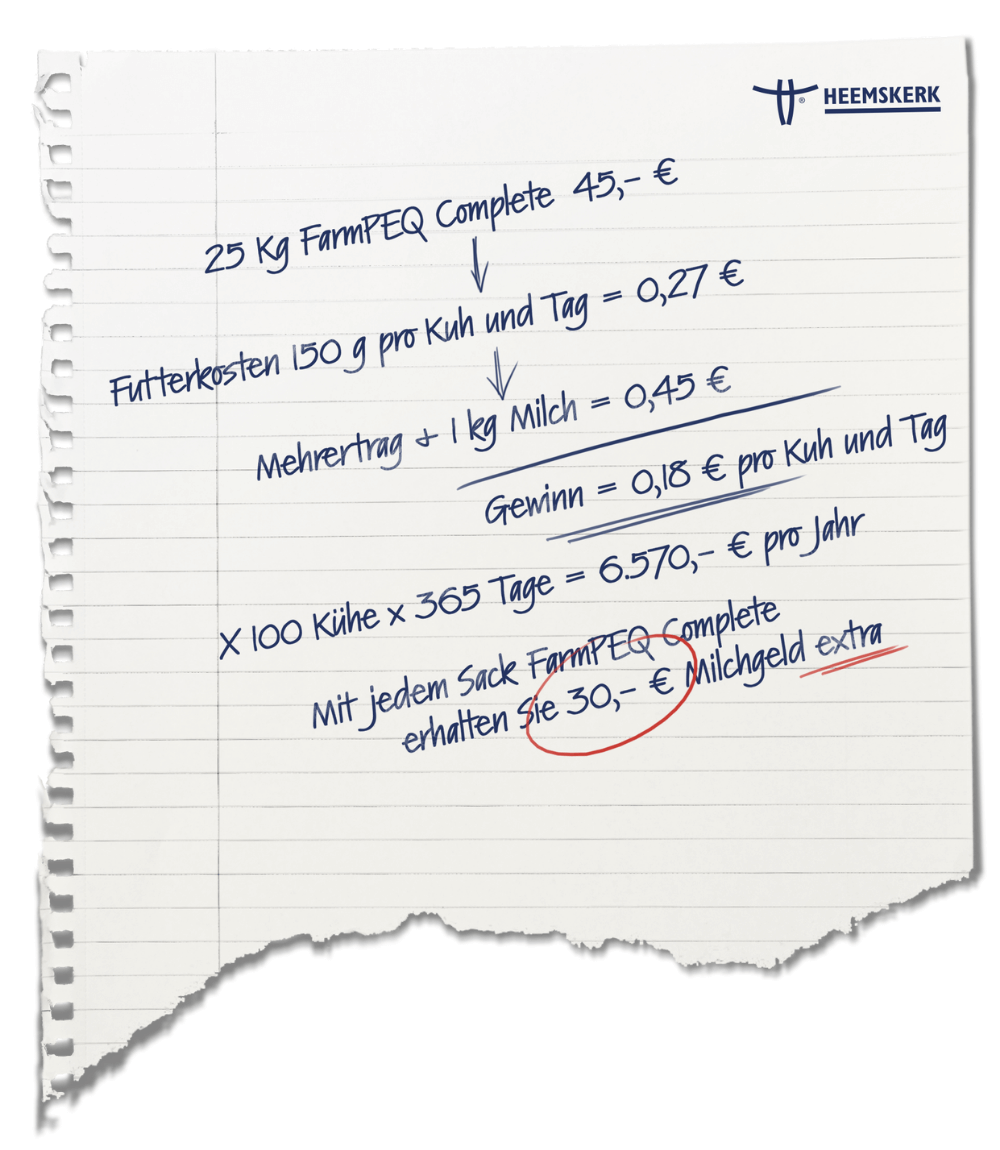 HEEMSKERK
25 Kg FarmPEQ Complete 45,- €
Futterkosten 150 g pro Kuh und Tag = 0,27 €
Mehrertrag + 1 kg Milch = 0,45 €
Gewinn = 0,18 € pro Kuh und Tag
X 100 Kühe x 365 Tage = 6.570,- € pro Jahr
Mit jedem Sack FarmPEQ Complete
erhalten Sie 30,- € Milchgeld extra